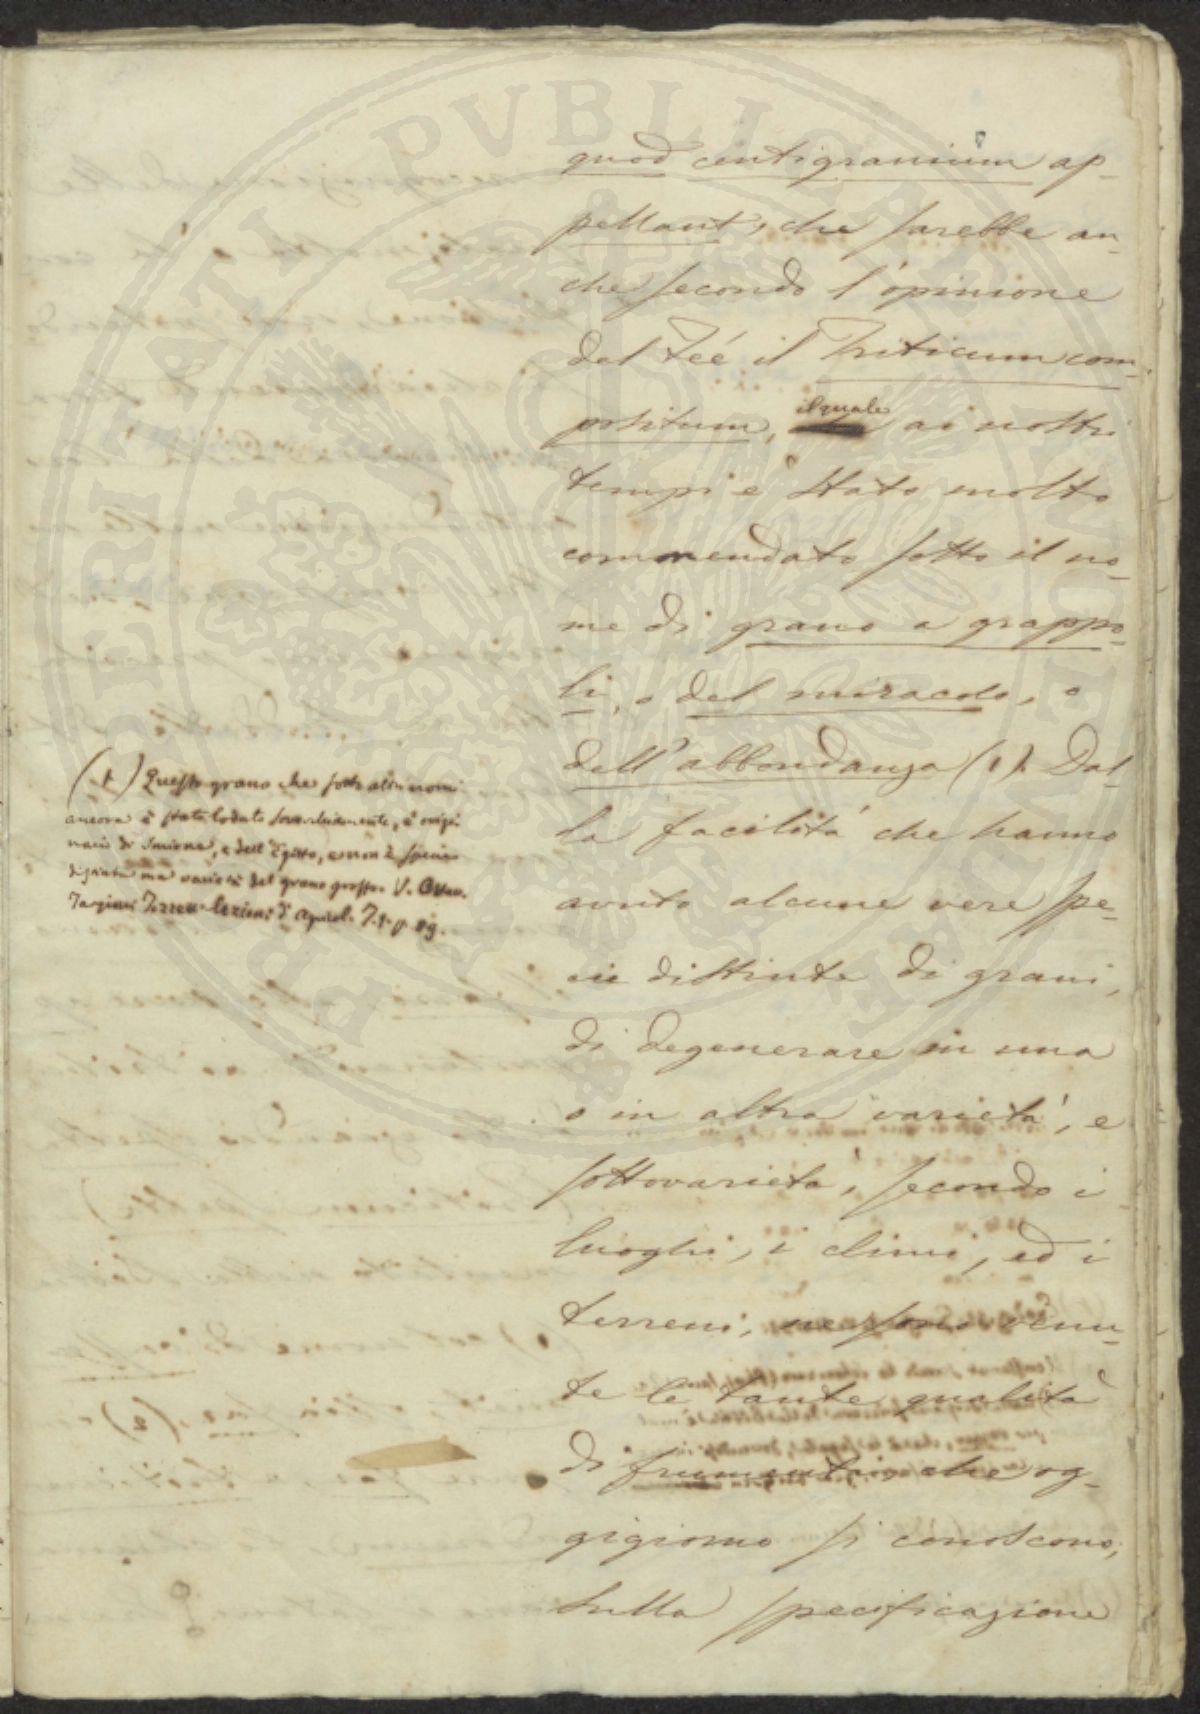 quod centigranium ap-
pellant, che sarebbe an-
che secondo l'opinione
del Réé il Triticum com-
positum, il quale ai nostri
tempi è stato molto
commendato sotto il no-
me di grano a grappo-
li, o del miracolo, o
dell'abbondanza (1). Dal-
la facilità che hanno
avuto alcune vere spe-
cie distinte di grani,
di degenerare in una
o in altra varietà, e
sottovarietà, secondo i
luoghi, i climi, ed i
terreni, ne sono venu-
te le tante qualità
di frumento, che og-
gigiorno si conoscono,
sulla specificazione
(1) Questo grano che sotto altri nomi
ancora è stato lodato soverchiamente, è origi-
nario di Smirne, e dell'Egitto, e non è specie
distinta ma varietà del grano grosso. V. Ottav.
Targioni Tozzetti lezioni d'Agricol. T. p. 89.